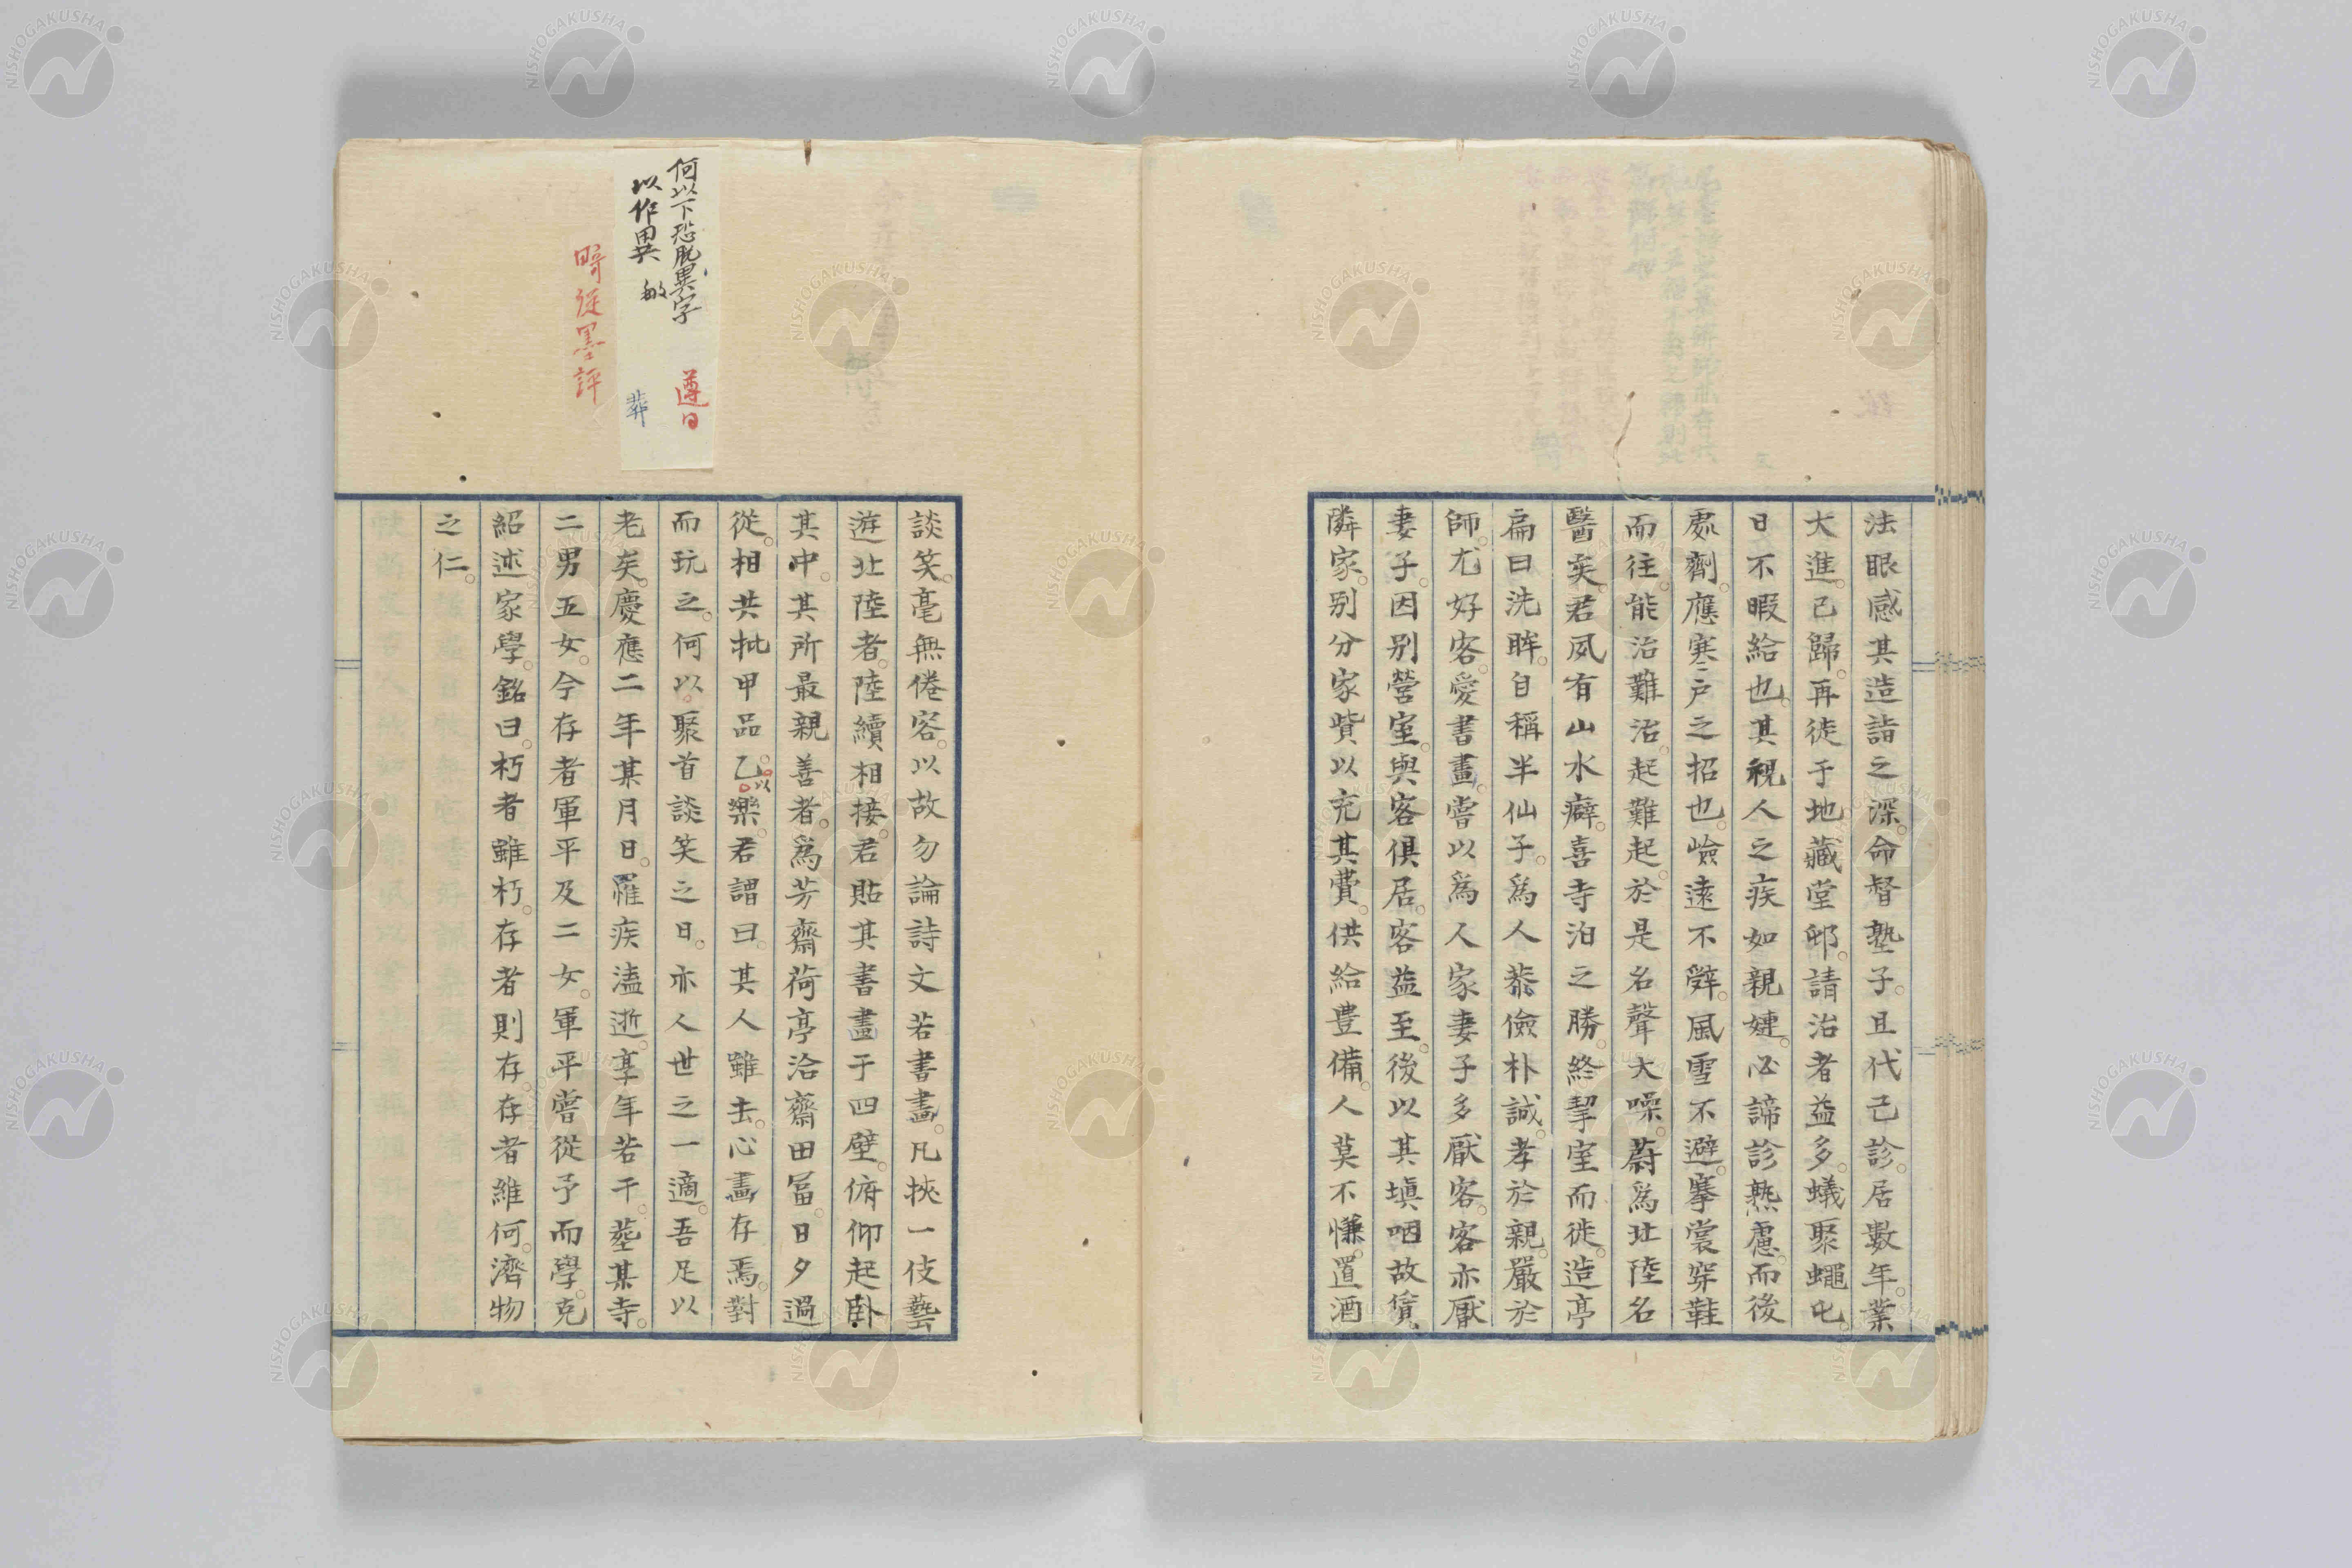 法眼感其造詣之深命督塾子且代己診居數年業
大進己歸再徒于地藏堂邨請治者益多蟻聚蠅屯
日不暇給也其視人之疾如親媑必諦診熟慮而後
処劑應寒戶之招也嶮遠不辤風雪不避搴裳穿鞋
而往能治難治起難起於是名聲大噪蔚爲北陸名
醫矣君夙有山水癖喜寺泊之勝終挈室而徙造亭
扁曰洗眸自稱半仙子爲人恭儉朴誠孝於親嚴於
師尤好客愛書畫嘗以爲人家妻子多厭客客亦厭
妻子因別營室與客俱居客益至後以其塡咽故賃
隣家別分家貲以充其費供給豊備人莫不慊置酒
談笑毫無倦容以故勿論詩文若書畫凡挾一伎藝
遊北陸者陸續相接君貼其書畫于四壁俯仰起臥
其中其所最親善者爲芳齋荷亭洽齋田畐日夕過
從相共批甲品乙以樂君謂曰其人雖去心畫存焉對
而玩之何以聚首談笑之日亦人世之一適吾足以
老矣慶應二年某月日罹疾溘逝享年若干塟某寺
二男五女今存者軍平及二女軍平嘗從予而學克
紹述家學銘曰朽者雖朽存者則存存者維何濟物
之仁
何以下恐脫異字
以作異 敏
遵曰
葬
疇從墨評